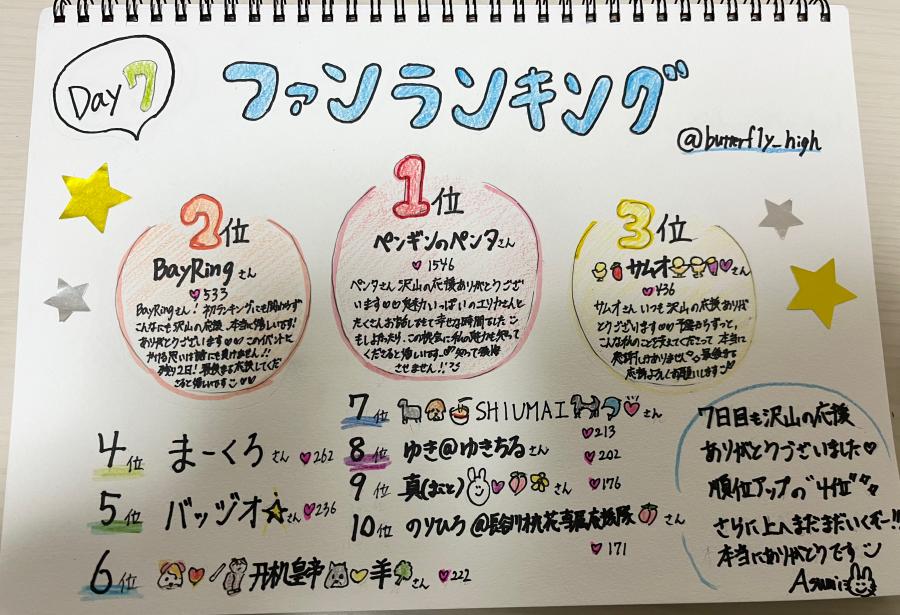 Day 7
ファンランキング
@butterfly_high
1位
ペンギンのペンタさん
1546
ペンタさん 沢山の応援ありがとうござ
います 魅力いっぱいのエリカさんと
たくさんお話しできて幸せな時間でした
もしよかったら、この機会に私の魅力も知って
くださると嬉しいです 知って後悔
させません!
2位
BayRingさん
533
BayRingさん!初ランキングにも関わらず
こんなにも沢山の応援 本当に嬉しいです!
ありがとうございます このイベントに
かける思いは誰にも負けません!!
残り2日!最後まで応援してくだ
さると嬉しいです
3位
サムオさん
436
サムオさん いつも沢山の応援ありが
とうございます 予選からずっと、
こんな私のことを支えてくださって 本当に
感謝しかありません 最後まで
応援よろしくお願いします
4位 まーくろさん 262
5位 バッジオ☆さん 236
6位 丹机皇帝 羊さん 222
7位 SHIUMAI さん
213
8位 ゆき@ゆきちるさん 202
9位 真(まこと) さん 176
10位 のりひろ@長谷川桃花専属応援隊 さん
171
7日目も沢山の応援
ありがとうございました
順位アップの"4位"
さらに上へまだまだいくぞー!!
本当にありがとうです
Asumi